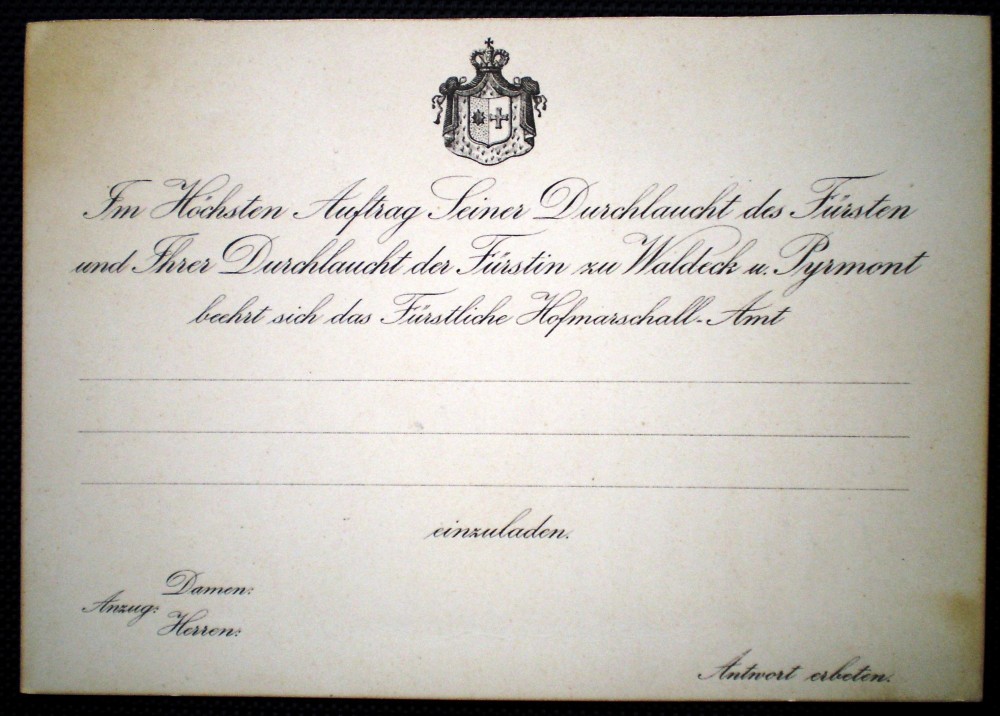 Im Höchsten Auftrag Seiner Durchlaucht des Fürsten
und Ihrer Durchlaucht der Fürstin zu Waldeck u. Pyrmont
beehrt sich das Fürstliche Hofmarschall-Amt
einzuladen.
Anzug:
Damen:
Herren:
Antwort erbeten.